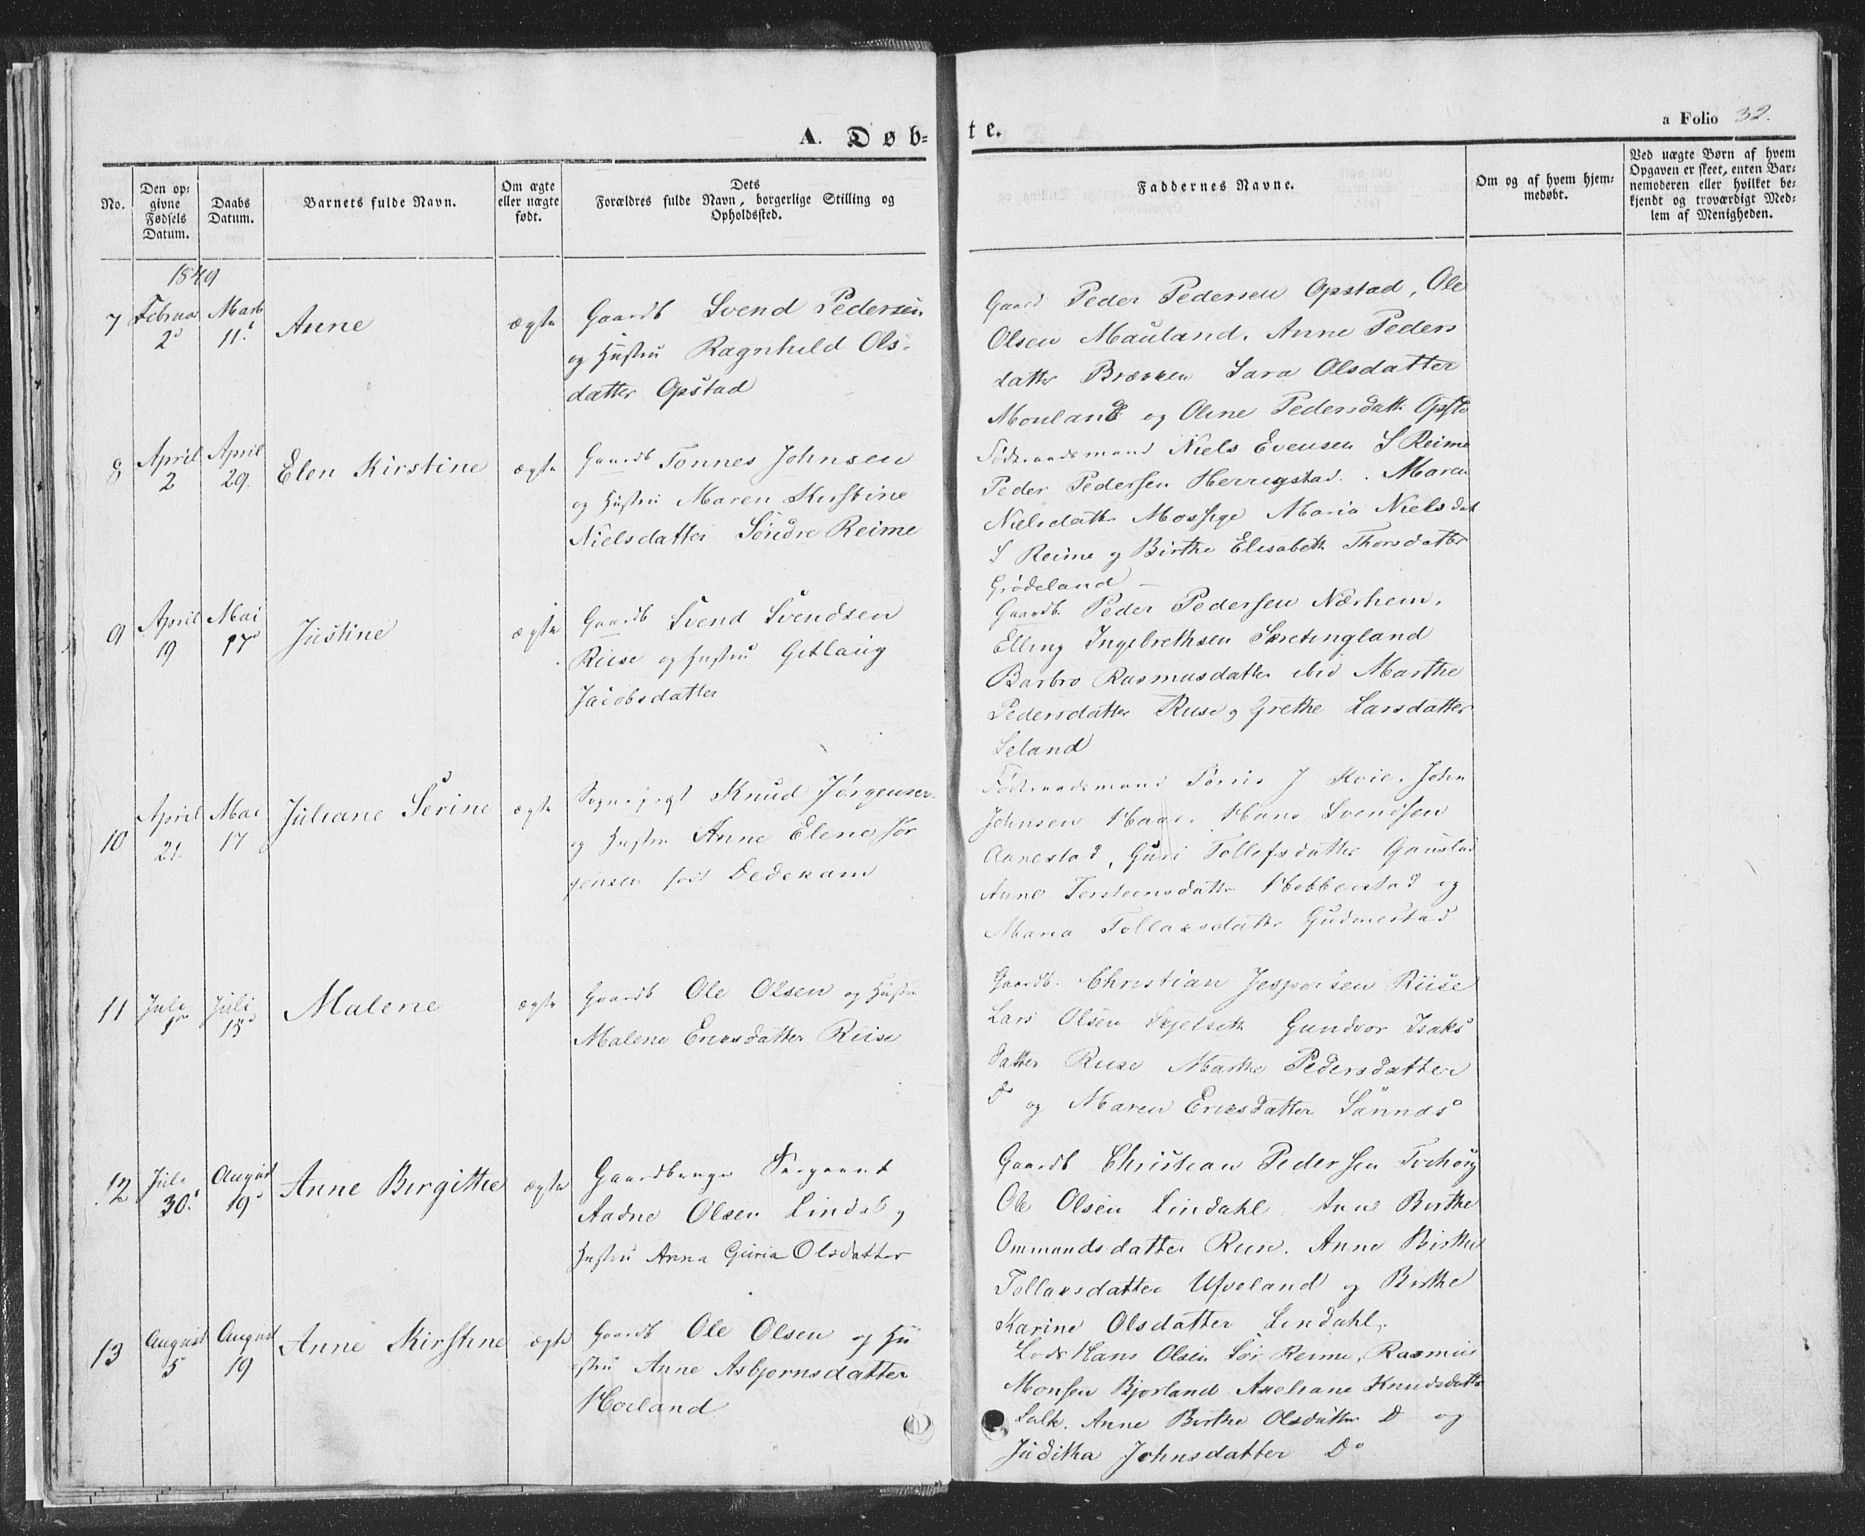 A. Døb=
te.
a Folio 32.
No.
Den op-
givne
Fødsels
Datum.
Daabs
Datum.
Barnets fulde Navn.
Om ægte
eller uægte
født.
Dets
Forældres fulde Navn, borgerlige Stilling og
Opholdssted.
Faddernes Navne.
Om og af hvem hjem-
medøbt.
Ved uægte Børn af hvem
Opgaven er skeet, enten Bar-
nemoderen eller hvilket be-
kjendt og troværdigt Med-
lem af Menigheden.
1849
7 Februar Marts
2 11 Anne ægte
Gaardb Svend Pedersen
og Hustru Ragnhild Ols-
datter Opstad
Gaard Peder Pedersen Opstad, Ole
Olsen Mauland, Anne Peders
datter Brækken Sara Olsdatter
Mouland og Oline Pedersdatt Opsto
8 April April
2 29. Elen Kirstine ægte
Gaardb Tonnes Johnsen
og Hustru Maren Kirstine
Nielsdatter Søndre Reime
Føderaadsmand Niels Evensen S Reime
Peder Pedersen Herrigstad. Maren
Nielsdattr Mossige Maria Nielsdat
S Reime og Birthe Elisabeth Thorsdatter
Grødeland
9 April Mai
19 17 Justine ægte
Gaardb Svend Svendsen
Riise og Hustru Getlaug
Jacobsdatter
Gaardb. Peder Pedersen Nærhem,
Elling Ingebrethsen Særetingland
Barbro Rasmusdatter ibid Marthe
Pedersdatter Riise og Grethe Larsdatter
Seland
10 April Mai
21 17 Juliane Serine ægte
Knud Jørgensen
og Hustru Anne Elene Jør
gensen født Dedekam
Føderaadsmand Tørris J Kvie, John
Johnsen Haar, Hans Svendsen
Aanestad, Guri Tollefsdatter Gauslad
Anne Torsteinsdattr Hobberstad og
Maria Tollaksdatter Gudmestad
11 Juli Juli
1 15 Malene ægte
Gaardb Ole Olsen og Hustru
Malene Ericsdatter Riise
Gaardb. Christian Jespersen Riise
Lars Olsen Skjelseth Gundvor Isaks
datter Riise Marthe Pedersdatter
Do og Maren Ericsdatter Sunnds
12 Juli August
30 19 Anne Birgitthe ægte
Gaardbruger Sergeant
Aadne Olsen Lindal og
Hustru Anna Guria Olsdatter
Gaardb Christian Pedersen Tvihoug
Ole Olsen Lindahl Anne Birthe
Ommundsdatter Rien. Anne Birthe
Tollaksdatter Ufveland og Birthe
Karine Olsdatter Lindahl,
13 August August
5 19 Anne Kirstine ægte
Gaardb Ole Olsen og Hu
stru Anne Asbjørnsdatter
Høiland
Lods Hans Olsen Sør Reime, Rasmus
Monsen Bjorland Axeliane Knudsdattr
Salte. Anne Birthe Olsdatter D og
Juditha Johnsdatter Do